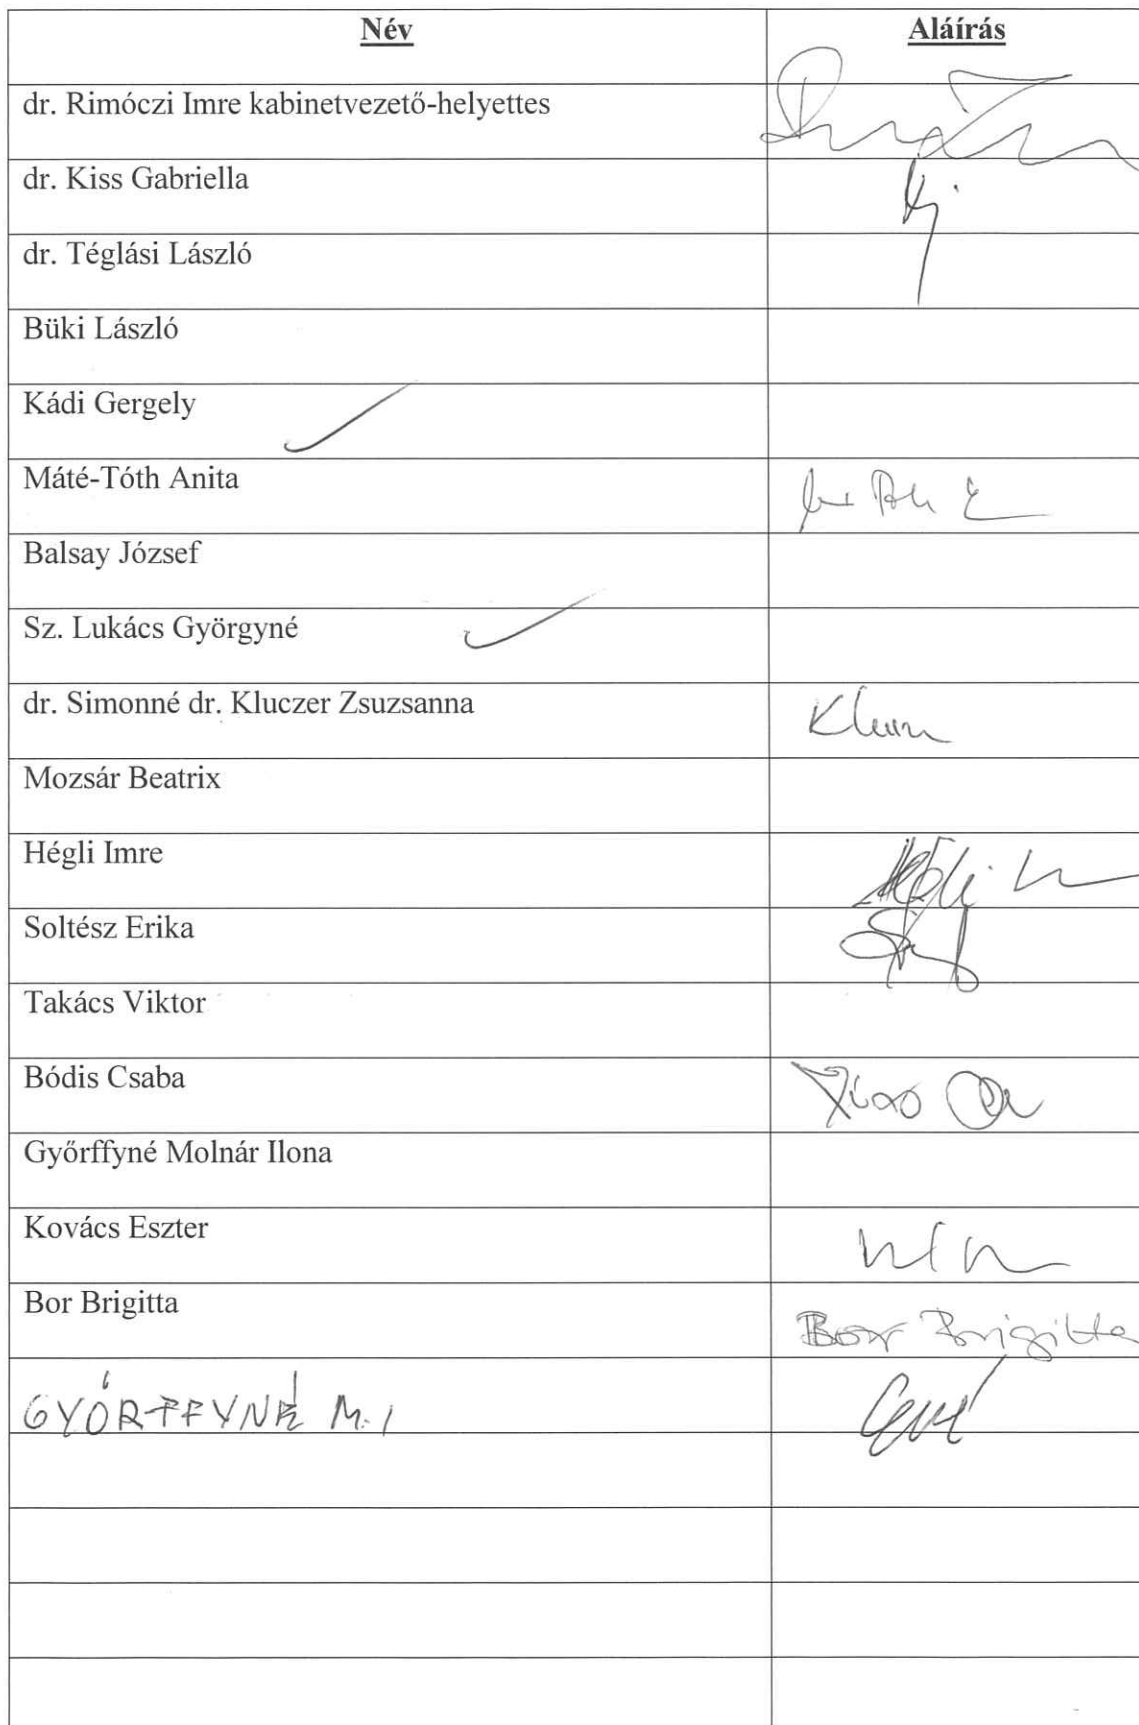 Név Aláírás
dr. Rimóczi Imre kabinetvezető-helyettes
dr. Kiss Gabriella
dr. Téglási László
Büki László
Kádi Gergely
Máté-Tóth Anita
Balsay József
Sz. Lukács Györgyné
dr. Simonné dr. Kluczer Zsuzsanna
Mozsár Beatrix
Hégli Imre
Soltész Erika
Takács Viktor
Bódis Csaba
Győrffyné Molnár Ilona
Kovács Eszter
Bor Brigitta Bor Brigitta
GYÓRFFYNÉ M. I